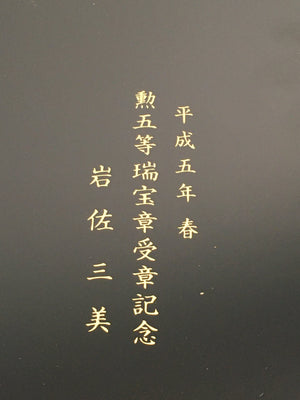 平成五年春
勲五等瑞宝章受章記念
岩佐三美